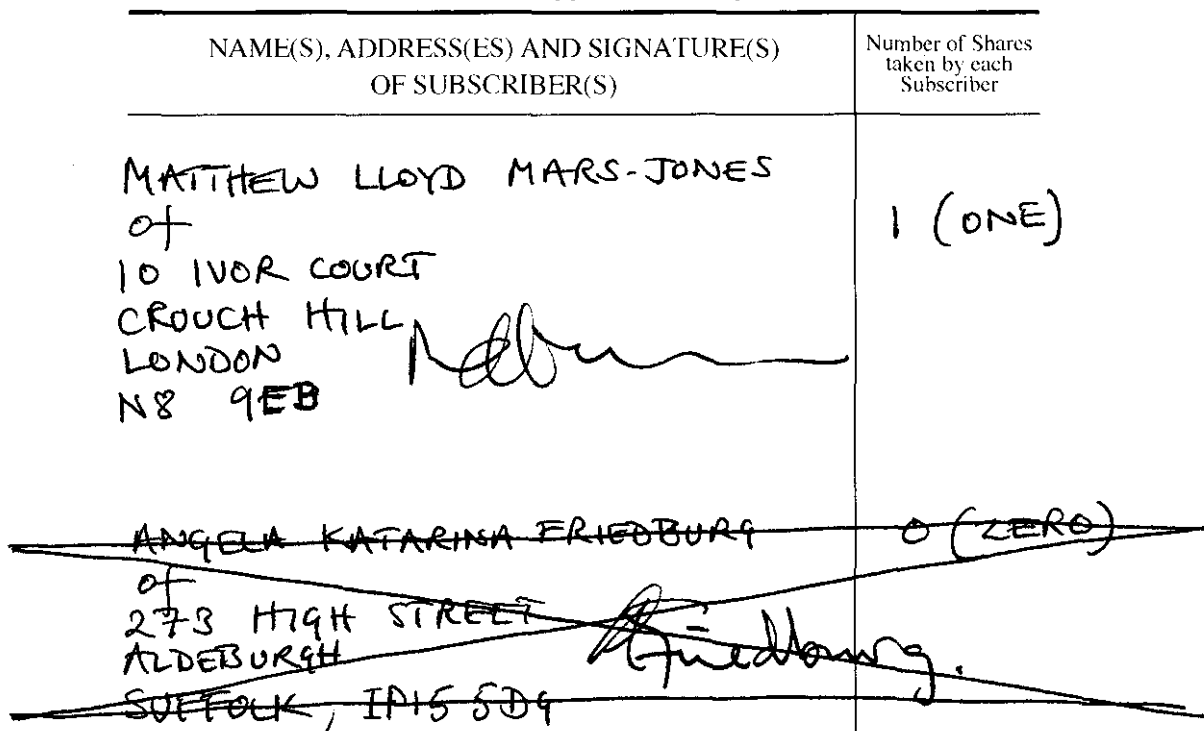 NAME(S), ADDRESS(ES) AND SIGNATURE(S)
OF SUBSCRIBER(S)
Number of Shares
taken by each
Subscriber
MATTHEW LLOYD MARS-JONES
of
1 (ONE)
10 IVOR COURT
CROUCH HILL
LONDON
N8 9EB
ANGELA KATARINA FRIEDBURG 0 (ZERO)
of
273 HIGH STREET
ALDEBURGH
Friedburg.
SUFFOLK, IP15 5DG